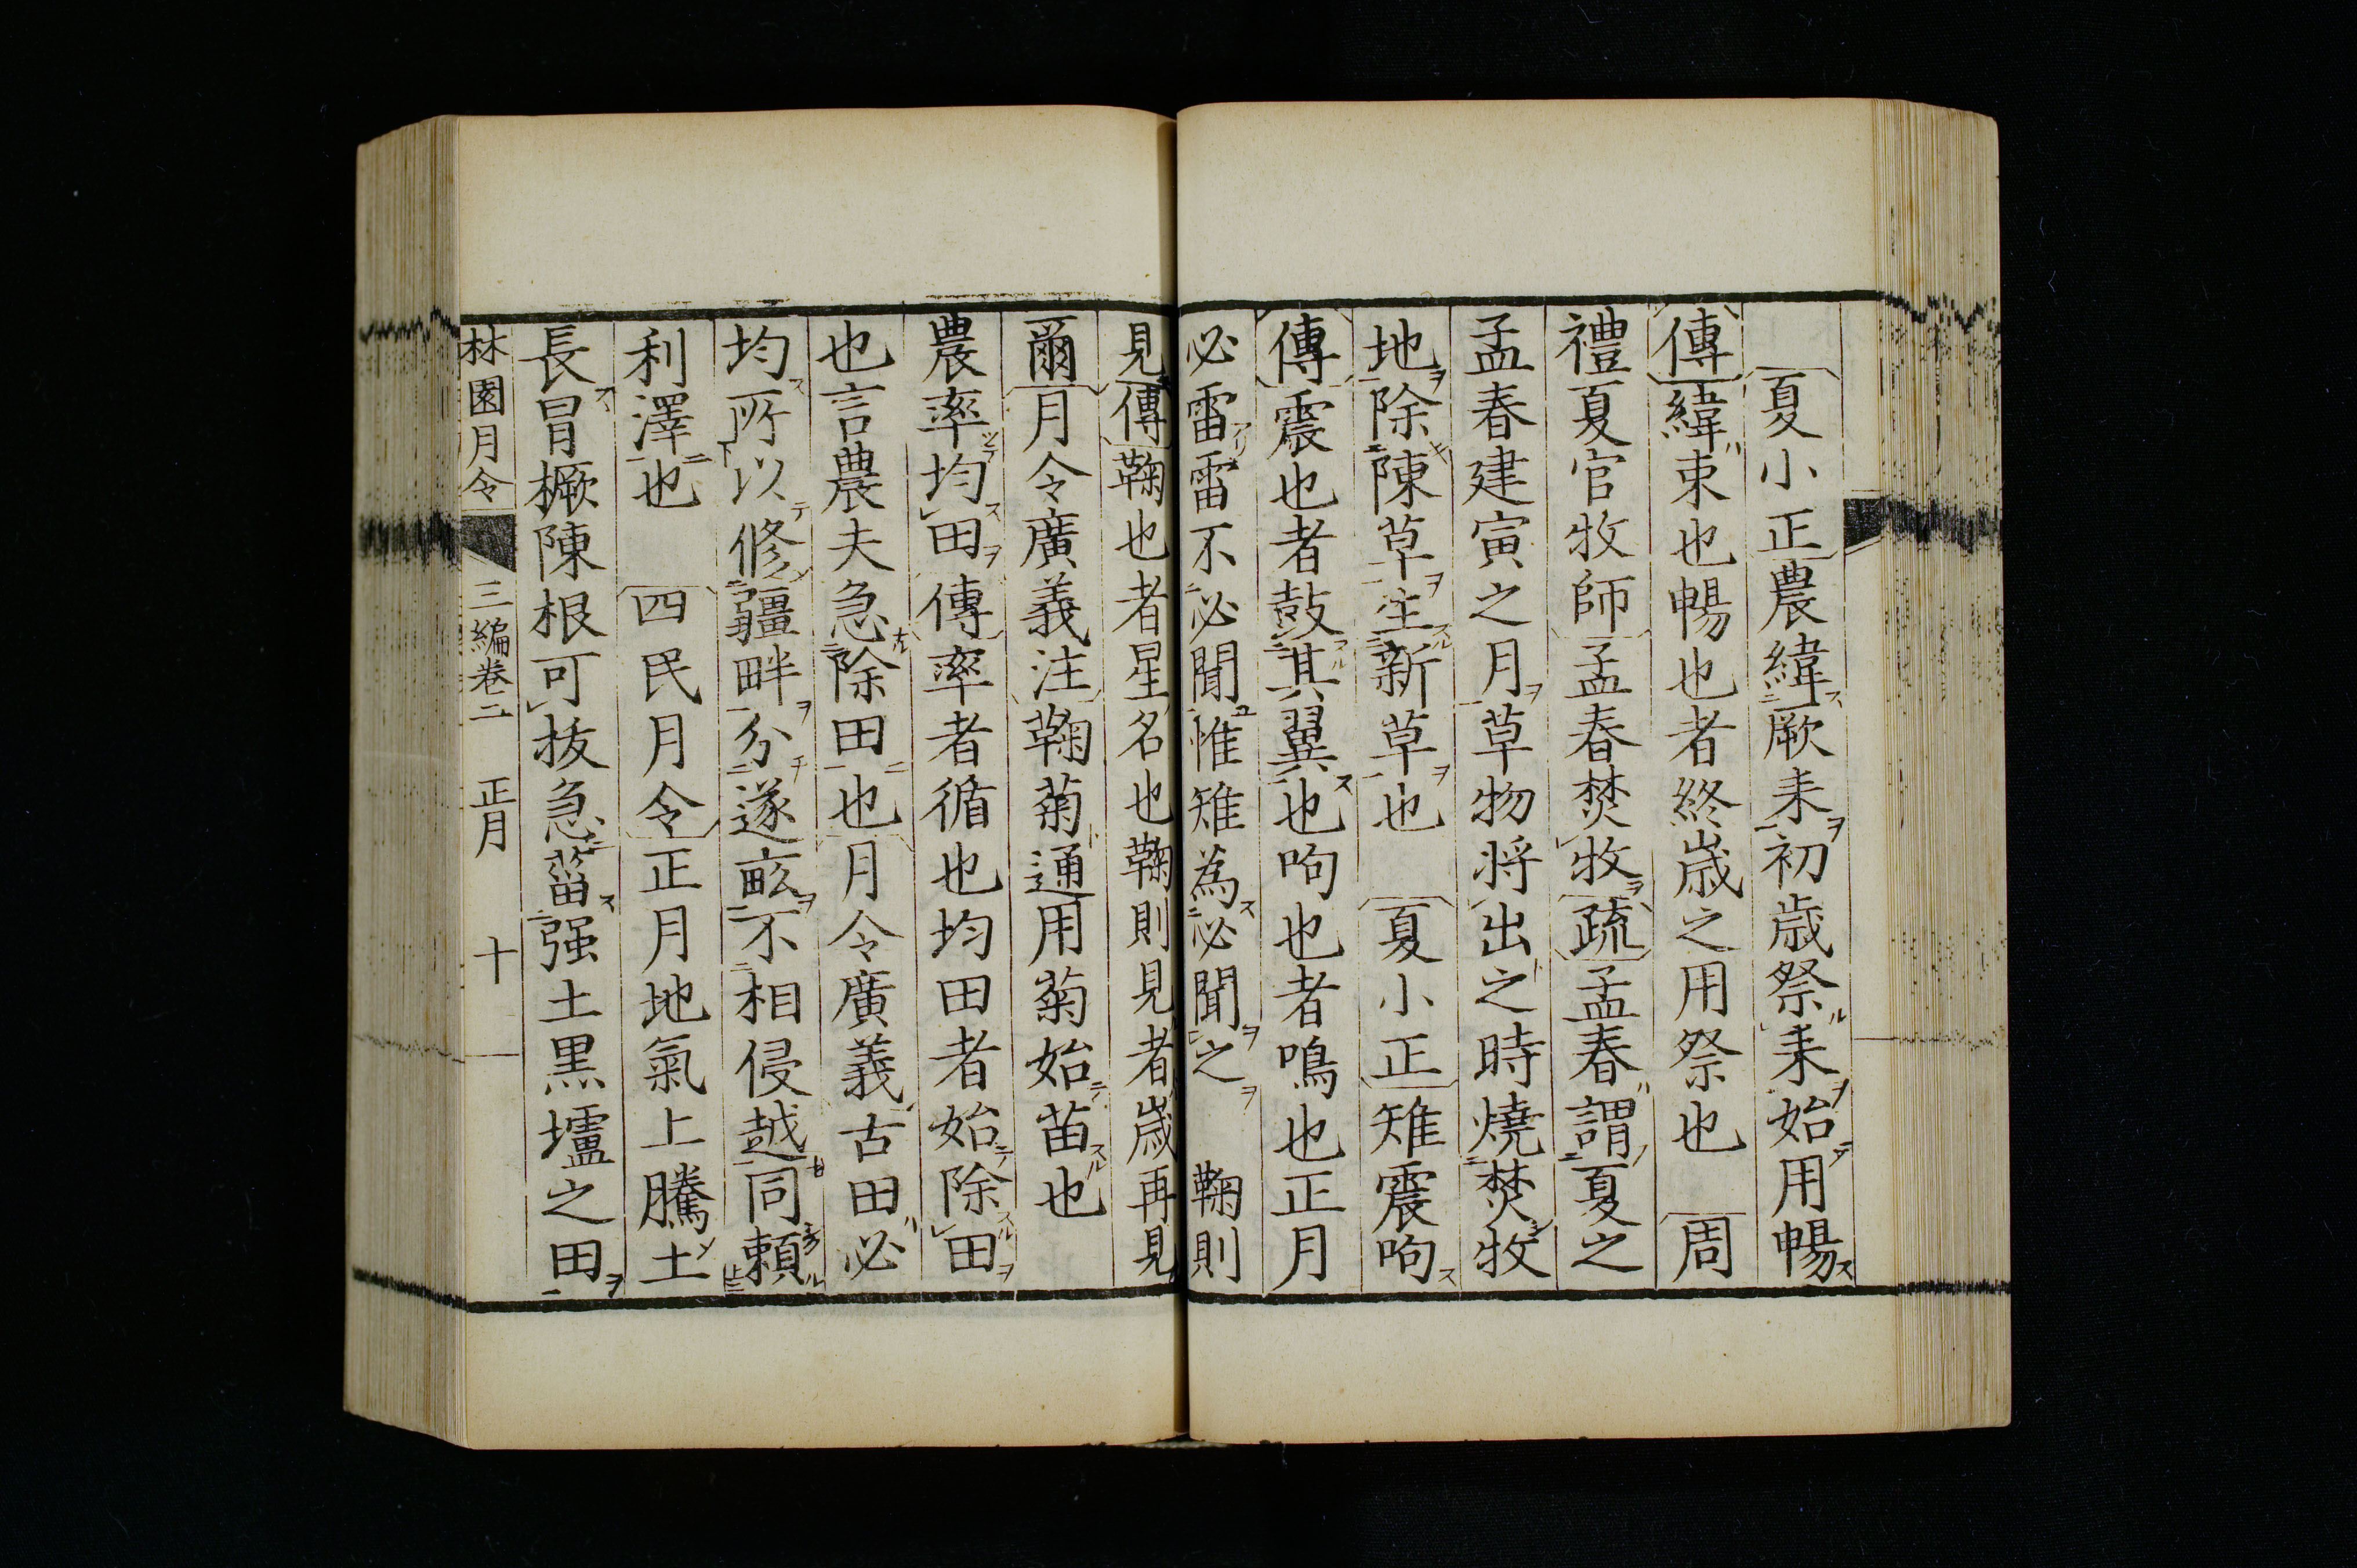 夏小正農緯厥耒初歳祭耒始用暢
傳緯束也暢也者終歳之用祭也 周
禮夏官牧師孟春焚牧疏孟春謂夏之
孟春建寅之月草物将出之時燒焚牧
地除陳草生新草也 夏小正雉震呴
傳震也者鼓其翼也呴也者鳴也正月
必雷雷不必聞惟雉為必聞之 鞠則
見傳鞠也者星名也鞠則見者歳再見
爾月令廣義注鞠菊通用菊始苗也
農率均田傳率者循也均田者始除田
也言農夫急除田也月令廣義古田必
均所以修疆畔分遂畝不相侵越同頼
利澤也 四民月令正月地氣上騰土
長冒橛陳根可拔急菑强土黒壚之田
林園月令 三編巻二 正月 十